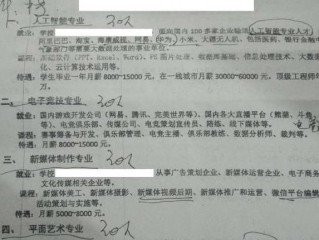 人工智能专业 30人
就业：学校 面向国内100多家企业输送人工智能专业人才
阿里巴巴、淘宝、海康威视、网易、华为、小米、大疆无人机、包括医药、银行金融
需要大数据处理的事业单位。
化、云计算技术运用等。
待遇：学生毕业一年月薪8000-15000元。在一线城市月薪30000-60000元。顶级工程师年
万。
二、电子竞技专业 30人
就业：国内游戏开发公司（网易、腾讯、完美世界等）、国内各大直播平台（熊猫、斗鱼
等）、电竞俱乐部、传媒公司、电竞策划宣传员、陪练、线下媒体等。
课程：赛事筹备与开发、俱乐部管理、电竞主播、俱乐部教练、数据分析师、裁判等。
待遇：月薪8000-15000元。
三、新媒体制作专业 30人
就业：学校 从事广告策划企业、新媒体运营企业、电子商务
文化传媒相关企业等。
课程：新媒体美工、新媒体摄影、新媒体视频后期、新媒体推广和运营、微信平台编辑
活动规划与实施等。
待遇：月薪5000-8000元。
四、平面艺术专业 30人